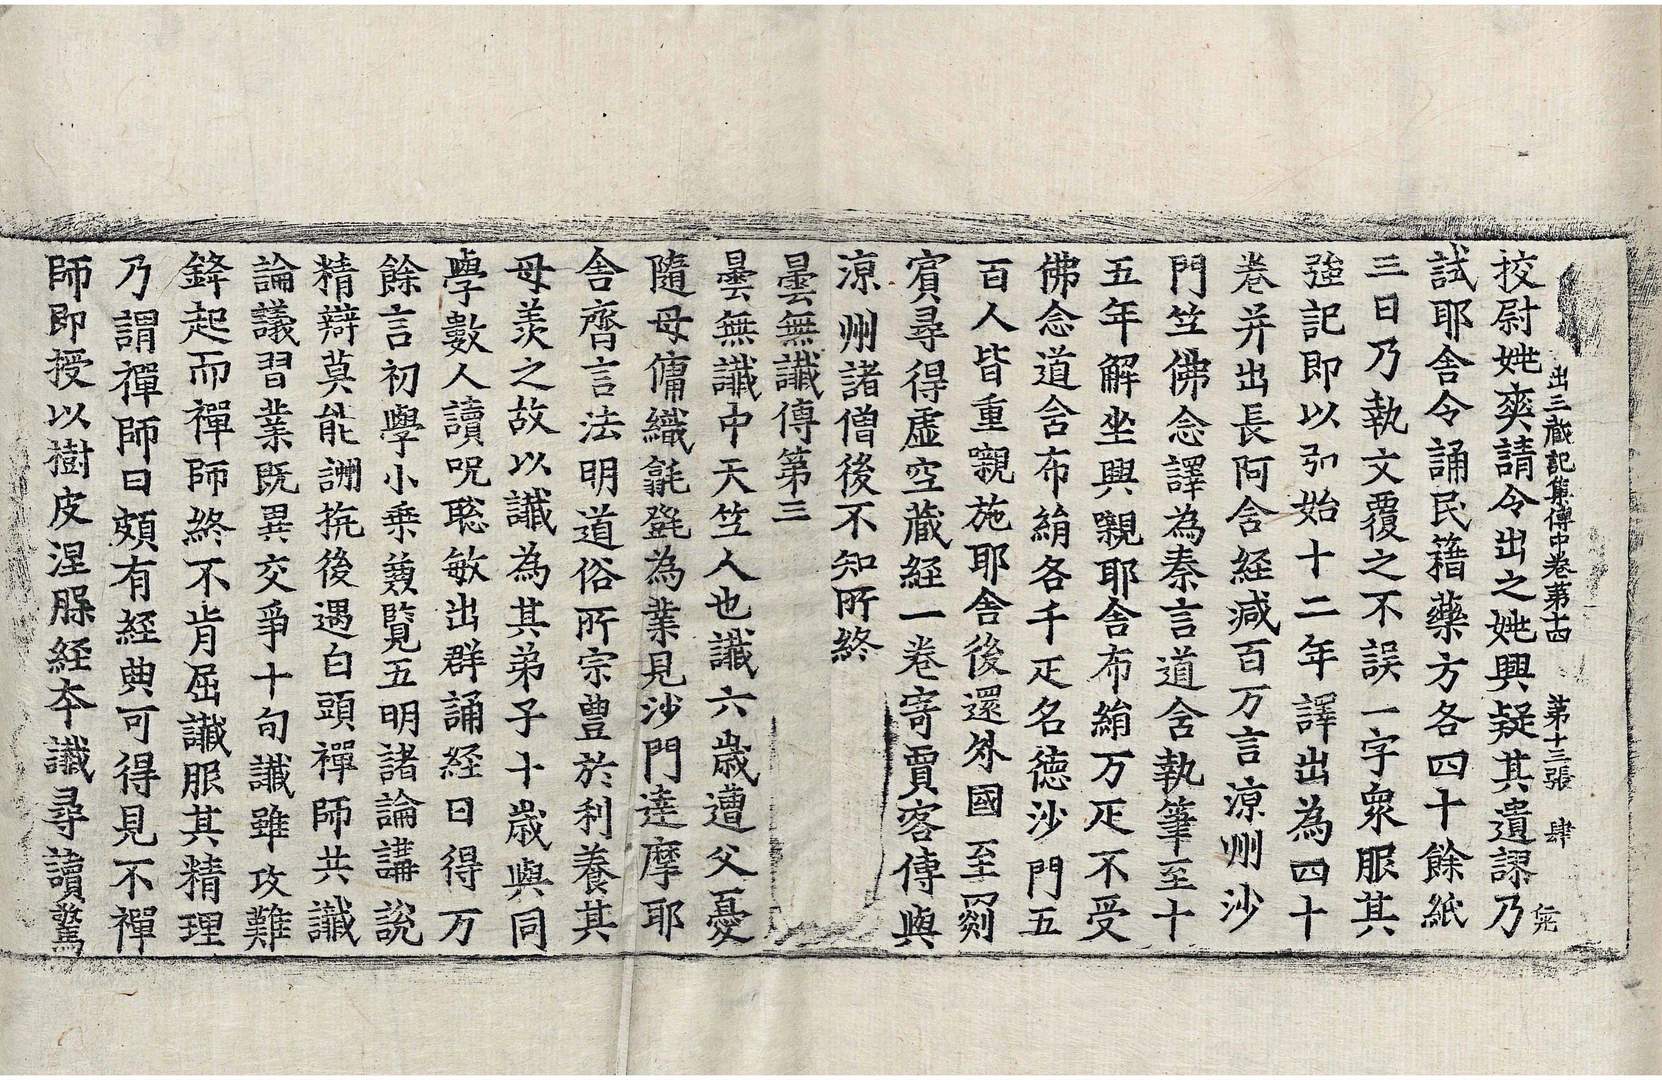 出三藏記集傳中卷第十四 第十三張 肆
校尉姚爽請令出之姚興疑其遺謬乃
試耶舍令誦民籍藥方各四十餘紙
三日乃執文覆之不誤一字衆服其
強記即以弘始十二年譯出為四十
卷并出長阿含経减百万言涼州沙
門竺佛念譯為秦言道含執筆至十
五年解坐興嚫耶舍布絹万疋不受
佛念道含布絹各千疋名德沙門五
百人皆重嚫施耶舍後還外國至罽
賓尋得虛空藏経一卷寄賈客傳與
涼州諸僧後不知所終
曇無讖傳第三
曇無讖中天竺人也讖六歲遭父憂
隨母傭織毾㲪為業見沙門達摩耶
舍齊言法明道俗所宗豊於利養其
母羡之故以讖為其弟子十歲與同
學數人讀呪聡敏出群誦経日得万
餘言初學小乘兼覧五明諸論講說
精辯莫能詶抗後遇白頭禪師共讖
論議習業既異交爭十旬讖雖攻難
鋒起而禪師終不肯屈讖服其精理
乃謂禪師曰頗有経典可得見不禪
師即授以樹皮涅槃経本讖尋讀驚